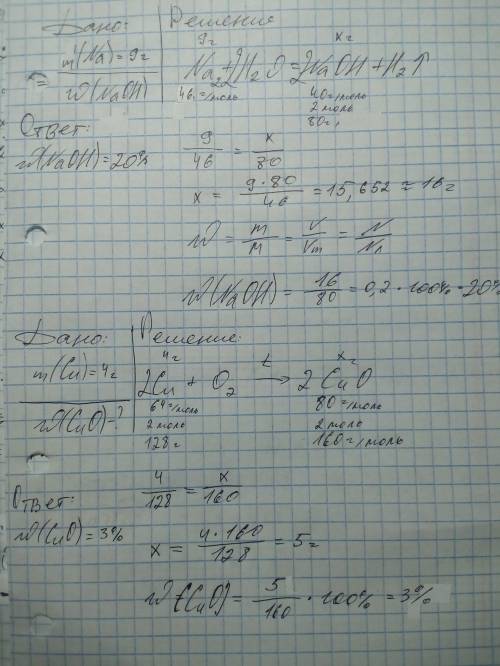 Дано:
Решение
m(Na) = 9г
ω(NaOH)
9г xг
2Na + 2H₂O = 2NaOH + H₂↑
46г/моль
40г/моль
2 моль
80г
Ответ:
ω(NaOH) = 20%
9/46 = x/80
x = 9·80/46 = 15,652 ≈ 16г
ω = m/M = V/Vm = N/Nₐ
ω(NaOH) = 16/80 = 0,2 · 100% = 20%
Дано:
Решение:
m(Cu) = 4г
ω(CuO) - ?
4г xг
2Cu + O₂ →ᵗ 2CuO
64г/моль
2 моль
128г
80г/моль
2 моль
160г/моль
Ответ:
ω(CuO) = 3%
4/128 = x/160
x = 4·160/128 = 5г
ω(CuO) = 5/160 · 100% = 3%